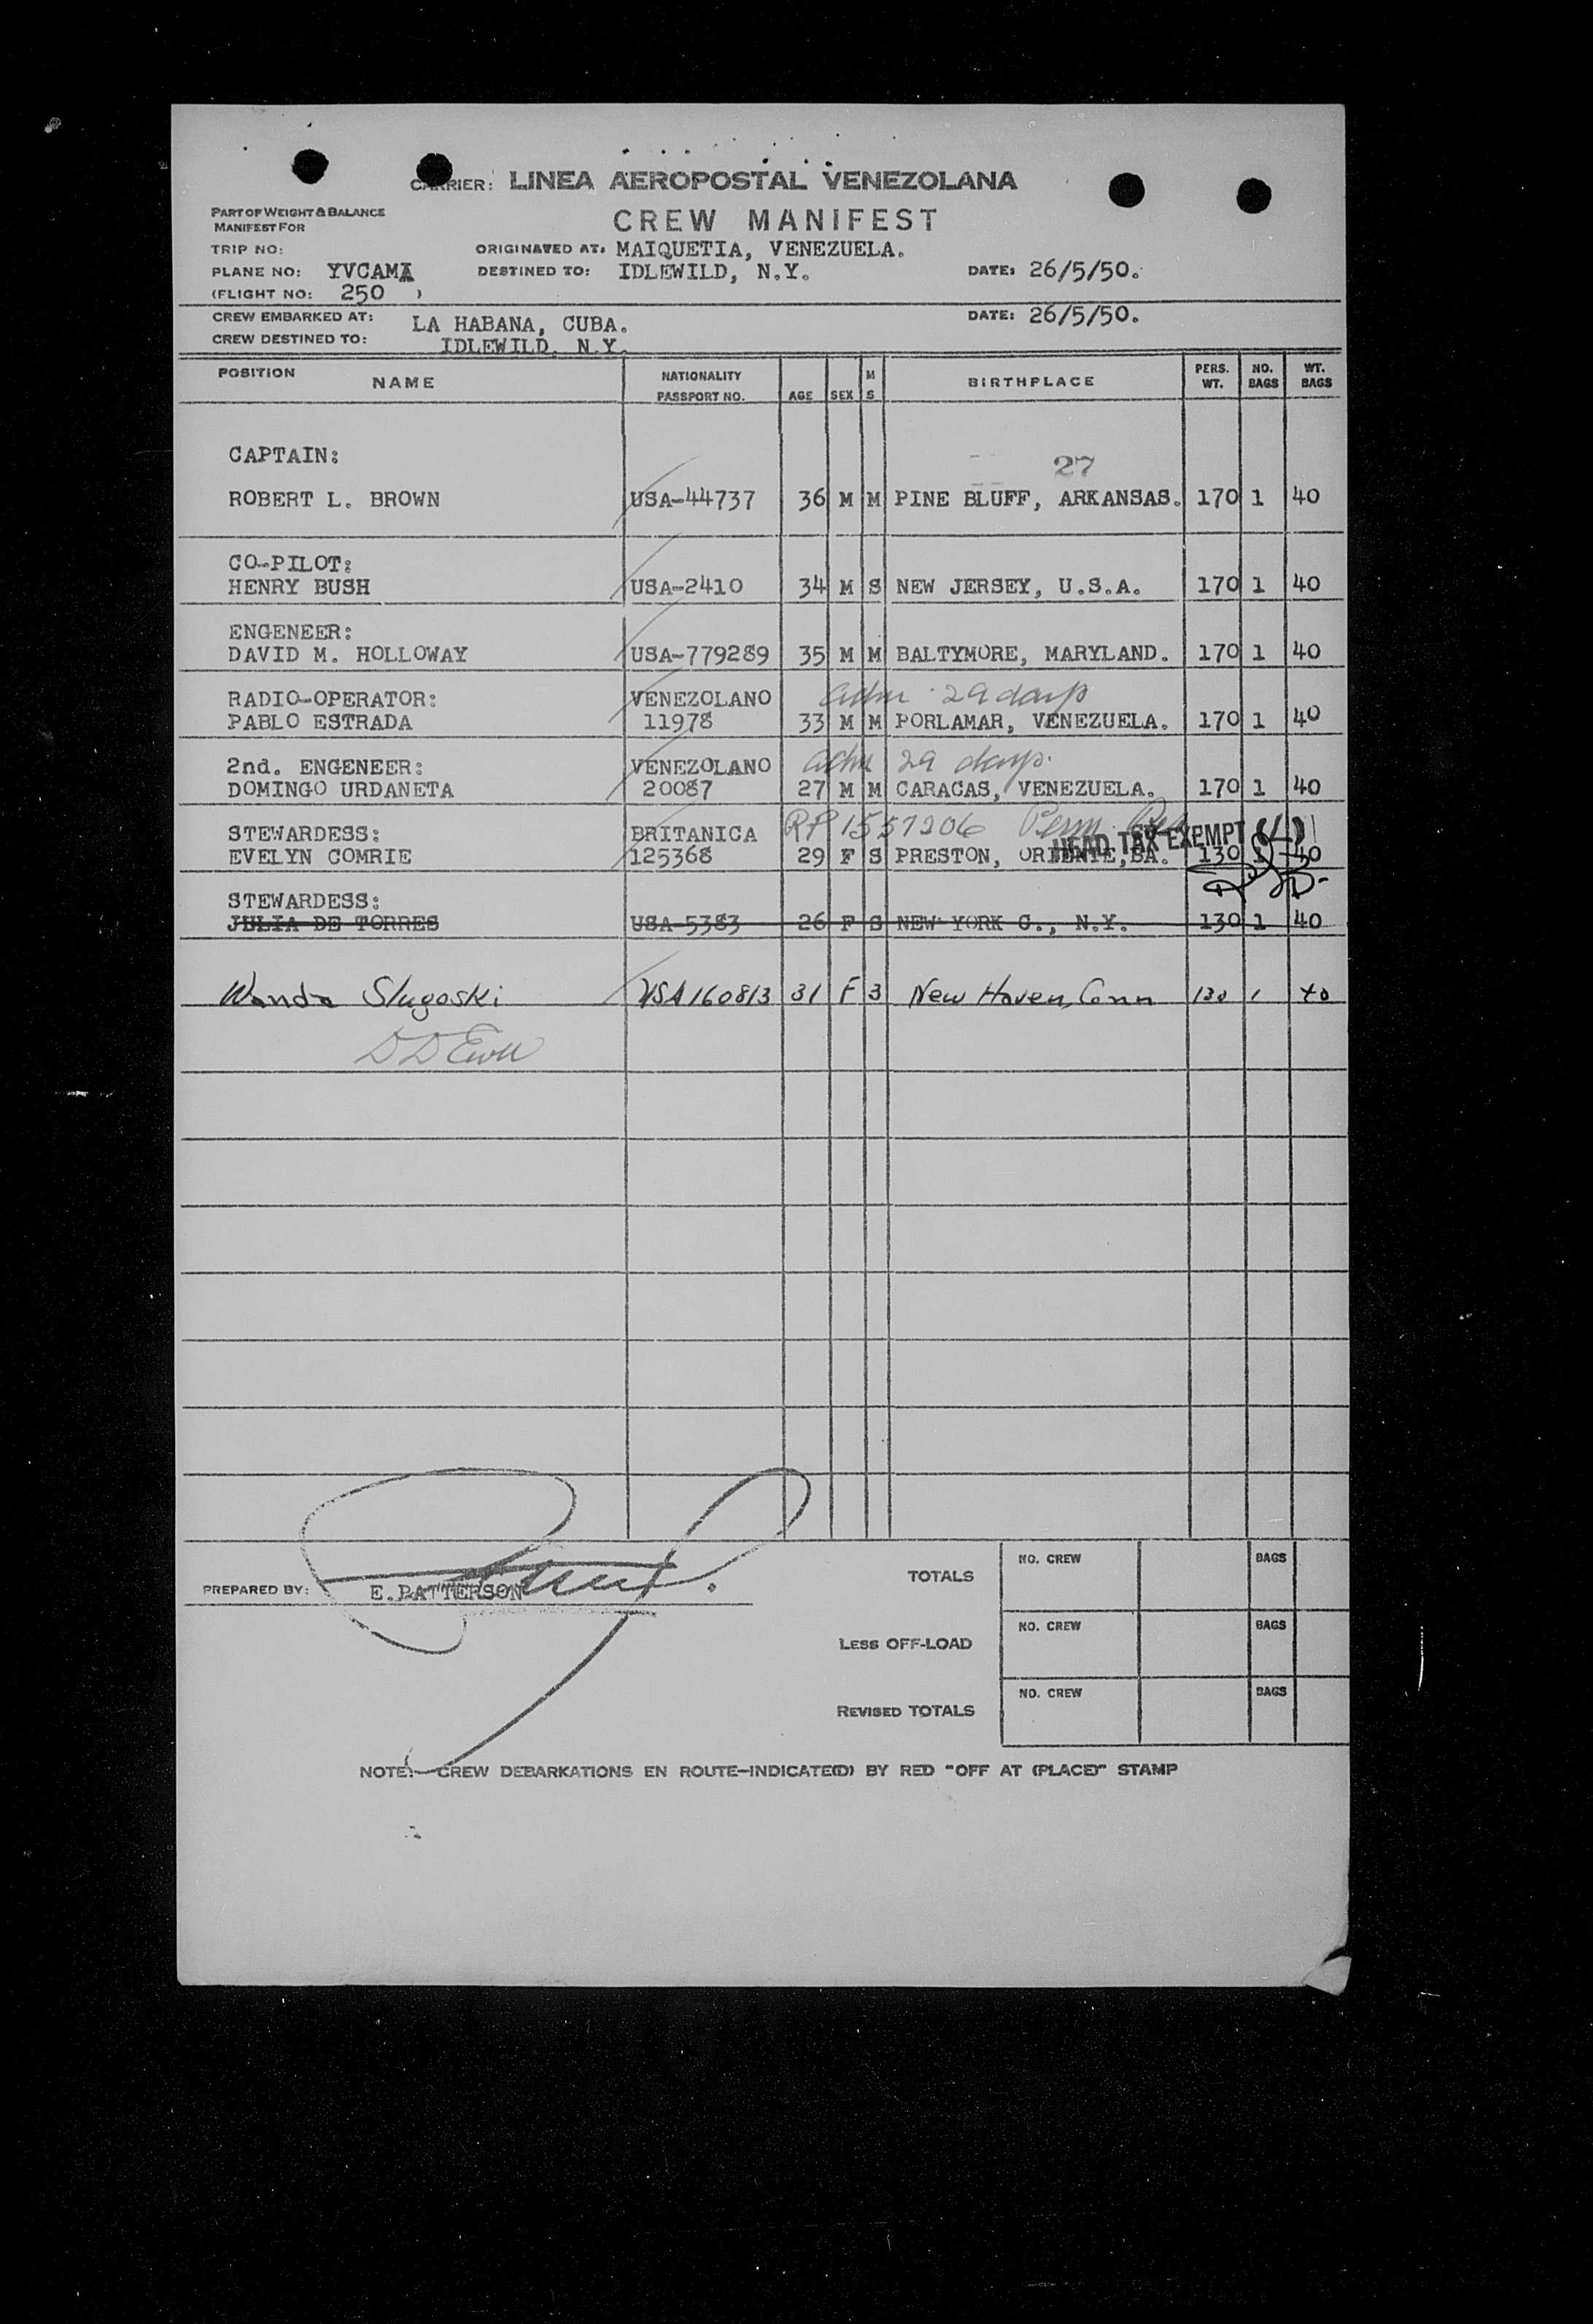 CARRIER: LINEA AEROPOSTAL VENEZOLANA
PART OF WEIGHT & BALANCE
MANIFEST FOR
CREW MANIFEST
TRIP NO: ORIGINATED AT: MAIQUETIA, VENEZUELA.
PLANE NO: YVCAMA DESTINED TO: IDLEWILD, N.Y. DATE: 26/5/50.
(FLIGHT NO: 250 )
CREW EMBARKED AT: LA HABANA, CUBA. DATE: 26/5/50.
CREW DESTINED TO: IDLEWILD, N.Y.
POSITION NAME NATIONALITY PASSPORT NO. AGE SEX M S BIRTHPLACE PERS. WT. NO. BAGS WT. BAGS
CAPTAIN: 27
ROBERT L. BROWN USA-44737 36 M M PINE BLUFF, ARKANSAS. 170 1 40
CO-PILOT:
HENRY BUSH USA-2410 34 M S NEW JERSEY, U.S.A. 170 1 40
ENGENEER:
DAVID M. HOLLOWAY USA-779289 35 M M BALTYMORE, MARYLAND. 170 1 40
RADIO-OPERATOR: VENEZOLANO adm 29 days
PABLO ESTRADA 11978 33 M M PORLAMAR, VENEZUELA. 170 1 40
2nd. ENGENEER: VENEZOLANO adm 29 days.
DOMINGO URDANETA 20087 27 M M CARACAS, VENEZUELA. 170 1 40
STEWARDESS: BRITANICA RP 1557206 Perm Res
HEAD TAX EXEMPT (L)
EVELYN COMRIE 125368 29 F S PRESTON, ORIENTE, BA. 130 1 40
STEWARDESS:
JULIA DE TORRES USA-5383 26 F S NEW YORK C., N.Y. 130 1 40
Wanda Slugoski USA 160813 31 F S New Haven, Conn 130 1 40
NO. CREW BAGS
TOTALS
PREPARED BY: E. PATTERSON
NO. CREW BAGS
LESS OFF-LOAD
NO. CREW BAGS
REVISED TOTALS
NOTE:—CREW DEBARKATIONS EN ROUTE—INDICATE(D) BY RED "OFF AT (PLACE)" STAMP